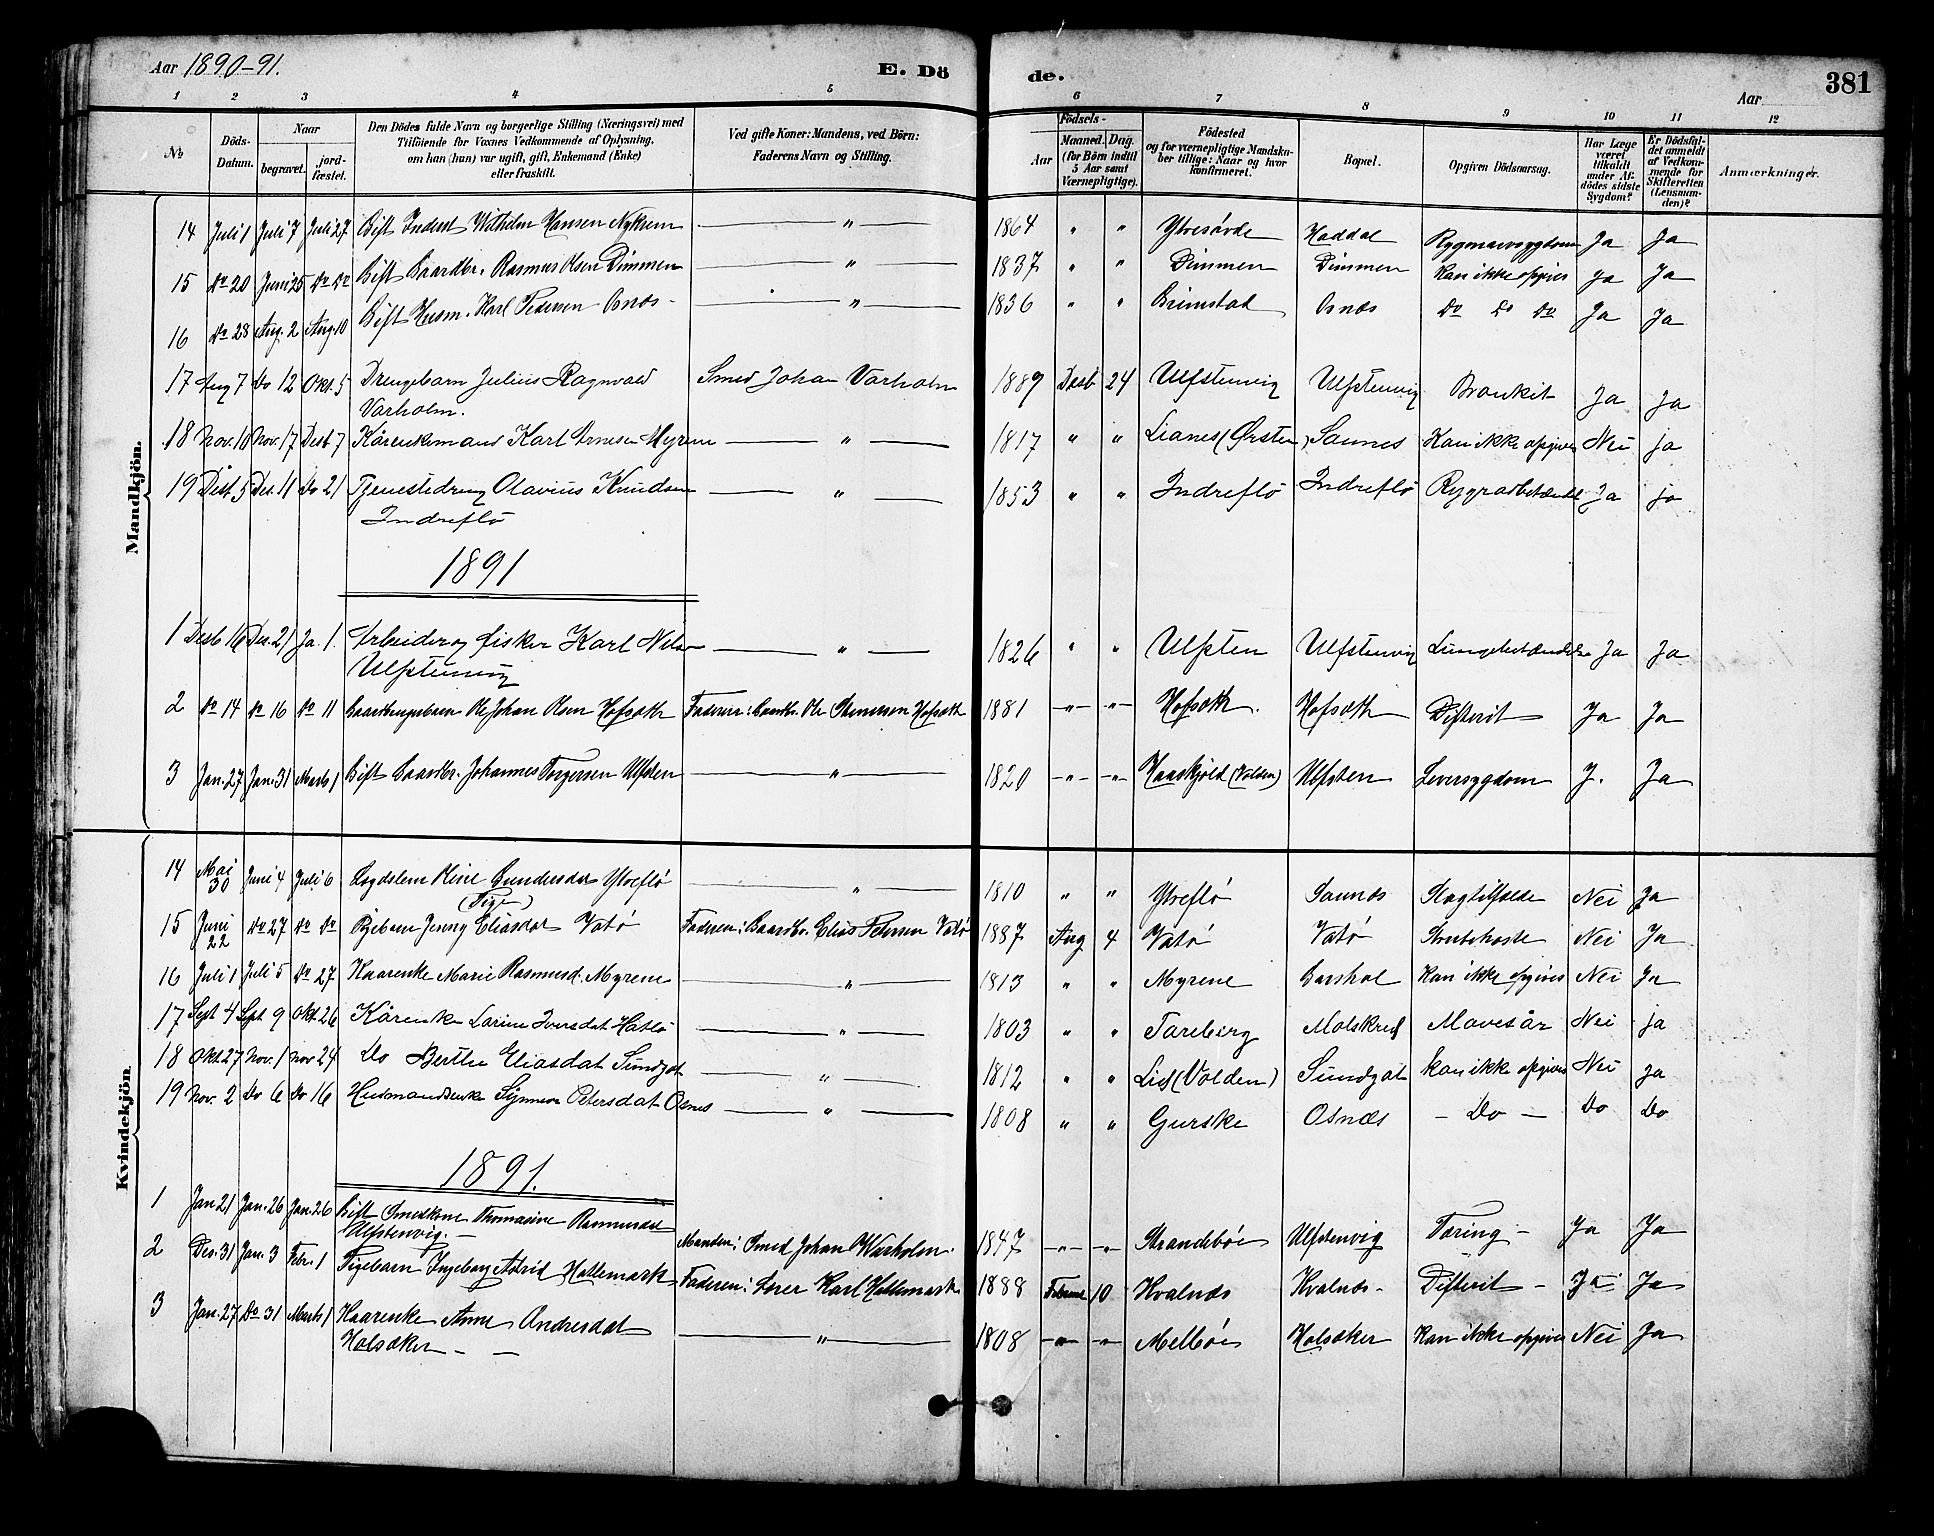 Aar 1890-91.
E. Döde.
Aar
381
1 2 3 4 5 6 7 8 9 10 11 12
No
Döds-Datum.
Naar
begravet.
jordfæstet.
Den Dödes fulde Navn og borgerlige Stilling (Næringsvei) med Tilföiende for Voxnes Vedkommende af Oplysning, om han (hun) var ugift, gift, Enkemand (Enke) eller fraskilt.
Ved gifte Koner: Mandens, ved Börn: Faderens Navn og Stilling.
Födsels-
Aar
Maaned. Dag.
(for Börn indtil 5 Aar samt Værnepligtige).
Födested og for værnepligtige Mandskaber tillige: Naar og hvor konfirmeret.
Bopæl.
Opgiven Dödsaarsag.
Har Læge været tilkaldt under Afdödes sidste Sygdom?
Er Dödsfaldet anmeldt af Vedkommende for Skifteretten (Lensmanden)?
Anmærkninger.
Mandkjön.
14 Juli 1 Juli 7 Juli 27 Gift Inderst Wilhelm Hansen Nykrem — " — 1864 " " Ytresövde Haddal Rygmarvsygdom Ja Ja
15 Do 20 Juni 25 Do Do Gift Gaardbr. Rasmus Olsen Dimmen — " — 1837 " " Dimmen Dimmen Kan ikke opgives Ja Ja
16 Do 28 Aug. 2 Aug. 10 Gift Husm. Karl Pedersen Osnæs — " — 1836 " " Brimstad Osnæs Do Do Do Ja Ja
17 Aug 7 Do 12 Okt. 5 Drengebarn Julius Ragnvald Varholm. Smed Johan Varholm 1889 Desb 24 Ulfstenvig Ulfstenvig Bronkit Ja Ja
18 Nov. 10 Nov. 17 Desb 7 Kårenkemand Karl Arnesen Myrene — " — 1817 " " Lianes (Ørsten) Saunes Kan ikke opgives Nei ja
19 Desb. 5 Des. 11 Do 21 Tjenestedreng Olavius Knudsen Indreflö — " — 1853 " " Indreflö Indreflö Rygradbetændel Ja ja
1891
1 Desb 16 Des. 21 Ja. 1. Arbeider og fisker Karl Nilsen Ulfstenvig — " — 1826 " " Ulfsten Ulfstenvig Lungebetændelse Ja Ja
2 Do 14 Do 16 Do 11 Gaardbrugebarn Ole Johan Olsen Hofsæth Faderen: Gaardbr. Ole Hofsæth 1881 -"- -"- Hofsæth. Hofsæth Difterit Ja Ja
3 Jan. 27 Jan. 31 Marts 1 Gift Gaardbr. Johannes Torgersen Ulfsten — " — 1820 -"- -"- (Volden) Ulfsten Leversygdom J. Ja
Kvindekjön.
14 Mai 30 Juni 4 Juli 6 Legdslem Oline Gundersdat Ytreflö — " — 1810 " " Ytreflö Saunæs Slagtilfælde Nei Ja
15 Juni 22 Do 27 Do Do (Pige) Pigebarn Jenny Eliasdat Vatö Faderen: Gaardbr. Elias Petersen Vatö 1887 Aug 4 Vatö Vatö Strubehoste Nei Ja
16 Juli 1 Juli 5 Do 27 Kaarenke Marie Rasmusd. Myrene — " — 1813 " " Myrene Garshol Kan ikke opgives Nei Ja
17 Sept 4 Sept 9 Okt. 26 Kårenke Larine Iversdat Hatlö — " — 1803 " " Tareberg Molskred Mavesår Nei ja
18 Okt 27 Nov. 1 Nov 24 Do Berthe Eliasdat Sundgot — " — 1812 " " Lid (Volden) Sundgot Kan ikke opgives Nei ja
19 Nov. 2 Do 6 Do 16 Husmandsenke Synneve Petersdat Osnes — " — 1808 " " Gurske Osnæs - Do - Do Do
1891.
1 Jan 21 Jan. 26 Jan. 26 Gift Smedkone Thomasine Rasmusdat Ulfstenvig. - Manden: Smed Johan Warholm. 1847 -"- -"- Strandeböe Ulfstenvig Tæring - Ja Ja
2 Des. 31 Jan. 3 Febr. 1 Pigebarn Ingeborg Astrid Hallemark Faderen: Karl Hallemark 1888 Februar 10 Kvalnæs Kvalnæs - Difterit - Ja Ja
3 Jan. 27 Do 31 Marts 1 Kaarenke Anne Andresdat Holsæker - - — " — 1808 -"- -"- Melböe Holsæker Kan ikke opgives Nei Ja